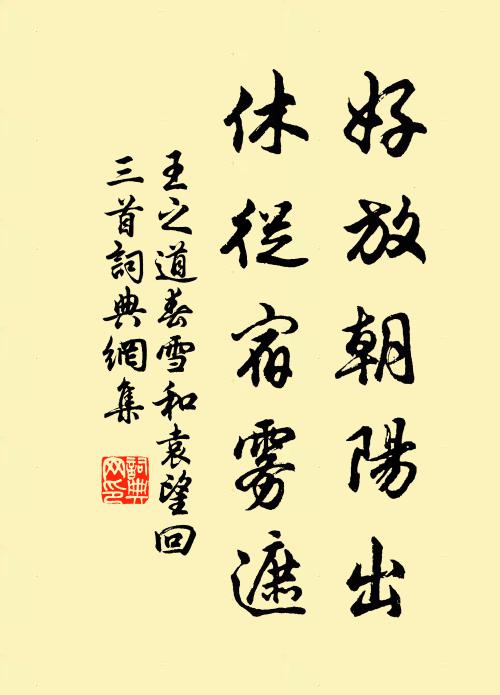 好放朝陽出
休從宿雾遮
王之道春雪和袁望回
三首詞典網集
詞典網印